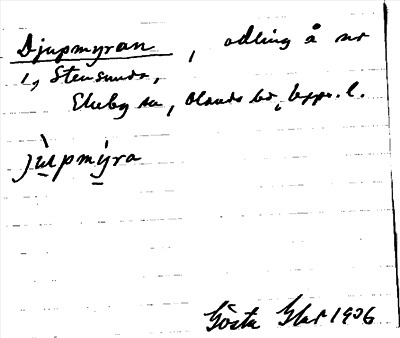 Djupmyran, odling å nr
1, Stensunda,
Ekeby sn, Olands hd, Upps. l.
jùpmýra
Gösta 1936